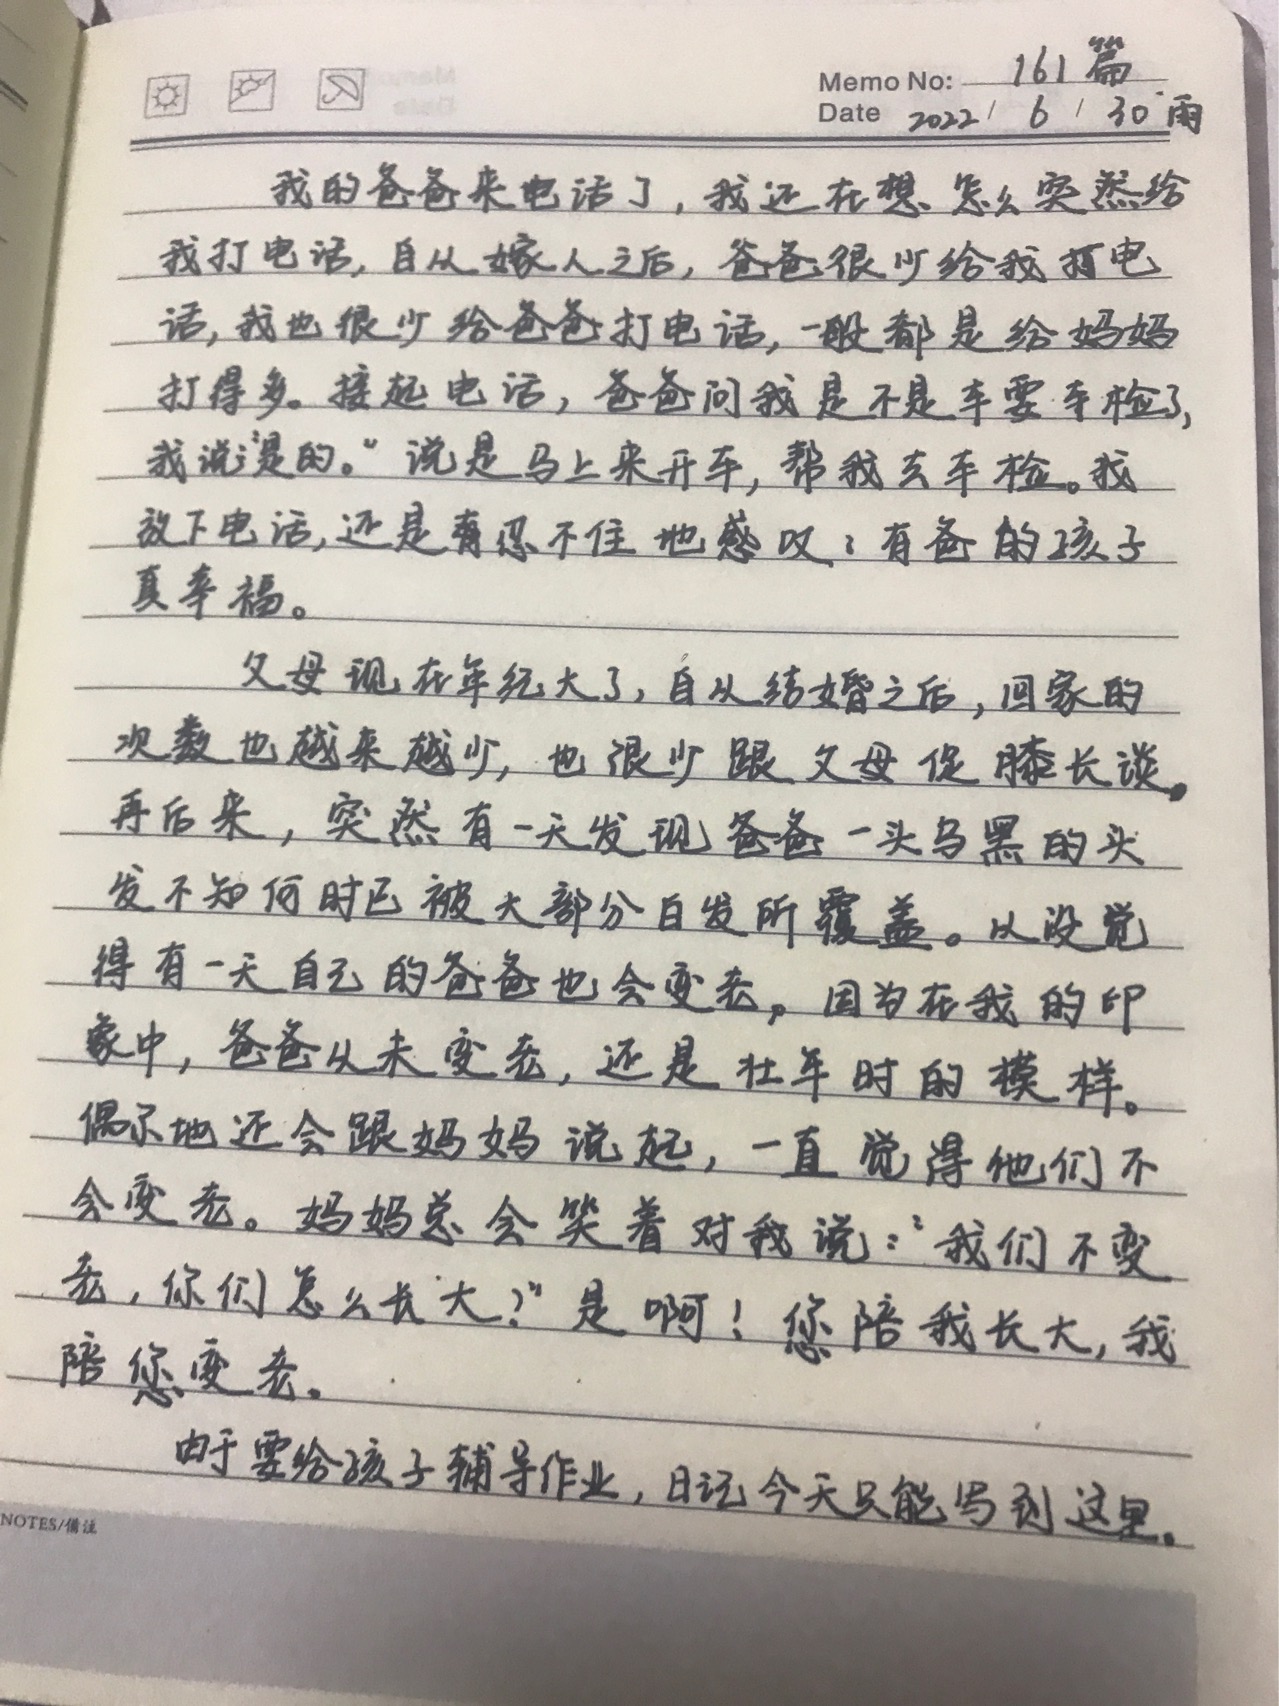 Memo No: 161篇
Date 2022 / 6 / 30 雨
我的爸爸来电话了，我还在想怎么突然给
我打电话，自从嫁人之后，爸爸很少给我打电
话，我也很少给爸爸打电话，一般都是给妈妈
打得多。接起电话，爸爸问我是不是车要车检了，
我说：“是的。”说是马上来开车，帮我去车检。我
放下电话，还是有忍不住地感叹：有爸的孩子
真幸福。
父母现在年纪大了，自从结婚之后，回家的
次数也越来越少，也很少跟父母促膝长谈。
再后来，突然有一天发现爸爸一头乌黑的头
发不知何时已被大部分白发所覆盖。从没觉
得有一天自己的爸爸也会变老，因为在我的印
象中，爸爸从未变老，还是壮年时的模样。
偶尔地还会跟妈妈说起，一直觉得他们不
会变老。妈妈总会笑着对我说：“我们不变
老，你们怎么长大？”是啊！您陪我长大，我
陪您变老。
由于要给孩子辅导作业，日记今天只能写到这里。
NOTES/备注